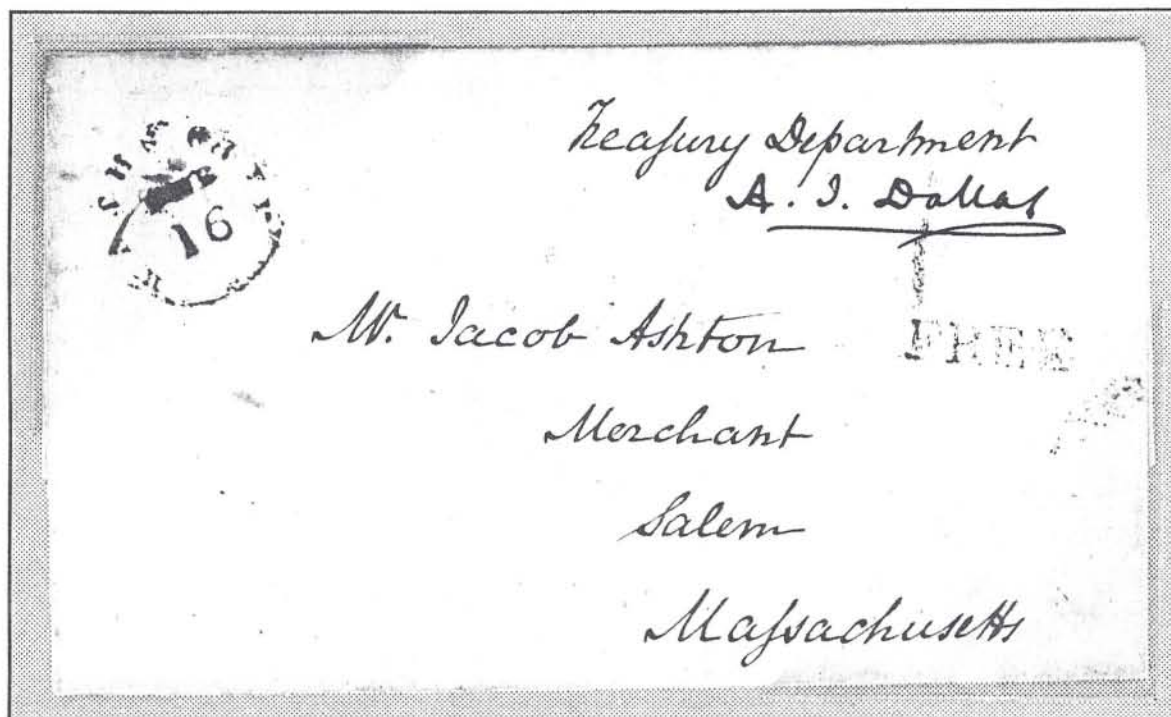 16
Treasury Department
A. I. Dallas
Mr. Jacob Ashton
FREE
Merchant
Salem
Massachusetts